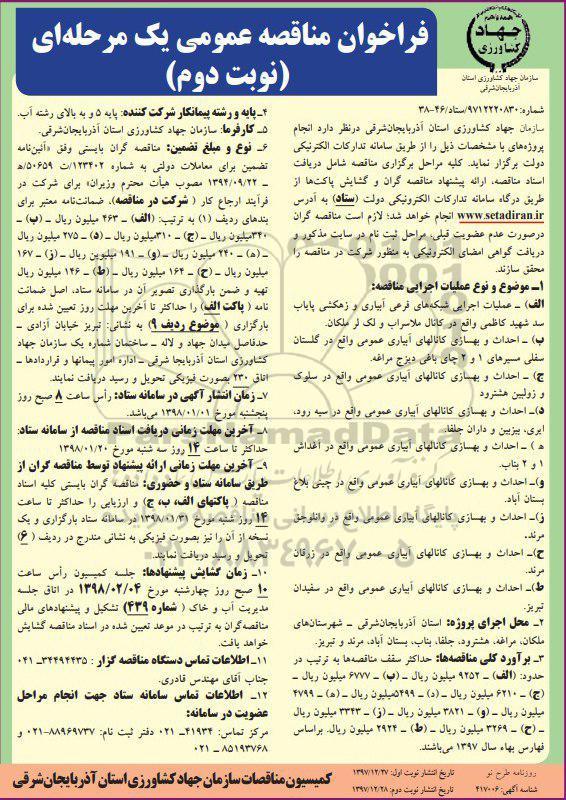 فراخوان مناقصه عمومی یک مرحله‌ای
(نوبت دوم)
جهاد
کشاورزی
سازمان جهاد کشاورزی استان
آذربایجان‌شرقی
شماره: ۹۷۱۲۲۲۰۸۳۰/ستاد/۴۶-۳۸
سازمان جهاد کشاورزی استان آذربایجان‌شرقی درنظر دارد انجام
پروژه‌های با مشخصات ذیل را از طریق سامانه تدارکات الکترونیکی
دولت برگزار نماید. کلیه مراحل برگزاری مناقصه شامل دریافت
اسناد مناقصه، ارائه پیشنهاد مناقصه گران و گشایش پاکت‌ها از
طریق درگاه سامانه تدارکات الکترونیکی دولت (ستاد) به آدرس
www.setadiran.ir انجام خواهد شد؛ لازم است مناقصه گران
درصورت عدم عضویت قبلی، مراحل ثبت نام در سایت مذکور و
دریافت گواهی امضای الکترونیکی به منظور شرکت در مناقصه را
محقق سازند.
۱ـ موضوع و نوع عملیات اجرایی مناقصه:
الف) ـ عملیات اجرایی شبکه‌های فرعی آبیاری و زهکشی پایاب
سد شهید کاظمی واقع در کانال ملاسراب و لک لر ملکان.
ب) ـ احداث و بهسازی کانالهای آبیاری عمومی واقع در گلستان
سفلی مسیرهای ۱ و ۲ چای باغی دیزج مراغه.
ج) ـ احداث و بهسازی کانالهای آبیاری عمومی واقع در سلوک
و زولبین هشترود
د)ـ احداث و بهسازی کانالهای آبیاری عمومی واقع در سیه رود،
ایری، بیزبین و داران جلفا.
ه ) ـ احداث و بهسازی کانالهای آبیاری عمومی واقع در آغداش
۱ و ۲ بناب.
و)ـ احداث و بهسازی کانالهای آبیاری عمومی واقع در چینی بلاغ
بستان آباد.
ز)ـ احداث و بهسازی کانالهای آبیاری عمومی واقع در وانلوجق
مرند.
ح)ـ احداث و بهسازی کانالهای آبیاری عمومی واقع در زرقان
مرند.
ط)ـ احداث و بهسازی کانالهای آبیاری عمومی واقع در سفیدان
تبریز.
۲ـ محل اجرای پروژه: استان آذربایجان‌شرقی ـ شهرستان‌های
ملکان، مراغه، هشترود، جلفا، بناب، بستان آباد، مرند و تبریز.
۳ـ برآورد کلی مناقصه‌ها: حداکثر سقف مناقصه‌ها به ترتیب در
حدود: (الف) ـ ۹۲۵۲ میلیون ریال ـ (ب) ـ ۶۷۷۷ میلیون ریال ـ
(ج) ـ ۶۲۱۰ میلیون ریال ـ (د) ـ ۵۴۹۹میلیون ریال ـ (ه) ـ ۴۷۹۹
میلیون ریال ـ (و) ـ ۳۸۲۱ میلیون ریال ـ (ز) ـ ۳۳۴۳ میلیون ریال
ـ (ح) ـ ۳۲۶۹ میلیون ریال ـ (ط) ـ ۲۹۲۴ میلیون ریال. براساس
فهارس بهاء سال ۱۳۹۷ می‌باشند.
۴ـ پایه و رشته پیمانکار شرکت کننده: پایه ۵ و به بالای رشته آب.
۵ـ کارفرما: سازمان جهاد کشاورزی استان آذربایجان‌شرقی.
۶ـ نوع و مبلغ تضمین: مناقصه گران بایستی وفق «آئین‌نامه
تضمین برای معاملات دولتی به شماره ۱۲۳۴۰۲/ت ۵۰۶۵۹هـ
ـ ۱۳۹۴/۰۹/۲۲ مصوب هیأت محترم وزیران» برای شرکت در
فرآیند ارجاع کار ( شرکت در مناقصه)، ضمانت‌نامه معتبر برای
بندهای ردیف (۱) به ترتیب: (الف) ـ ۴۶۳ میلیون ریال ـ (ب) ـ
۳۴۰میلیون ریال ـ (ج) ـ ۳۱۰میلیون ریال ـ (د) ـ ۲۷۵ میلیون ریال
ـ (ه) ـ ۲۴۰ میلیون ریال ـ (و) ـ ۱۹۱ میلیون ریال ـ (ز) ـ ۱۶۷
میلیون ریال ـ (ح) ـ ۱۶۴ میلیون ریال ـ (ط) ـ ۱۴۶ میلیون ریال
تهیه و ضمن بارگذاری تصویر آن در سامانه ستاد، اصل ضمانت
نامه ( پاکت الف) را حداکثر تا آخرین مهلت روز تعیین شده برای
بارگزاری ( موضوع ردیف ۹ ) به نشانی: تبریز خیابان آزادی ـ
حدفاصل میدان جهاد و لاله ـ ساختمان شماره یک سازمان جهاد
کشاورزی استان آذربایجا شرقی ـ اداره امور پیمانها و قراردادها ـ
اتاق ۲۳۰ بصورت فیزیکی تحویل و رسید دریافت نمایند.
۷ـ زمان انتشار آگهی در سامانه ستاد: رأس ساعت ۸ صبح روز
پنجشنبه مورخ ۱۳۹۸/۰۱/۰۱ می‌باشد.
۸ـ آخرین مهلت زمانی دریافت اسناد مناقصه از سامانه ستاد:
حداکثر تا ساعت ۱۴ روز سه شنبه مورخ ۱۳۹۸/۰۱/۲۰
۹ـ آخرین مهلت زمانی ارائه پیشنهاد توسط مناقصه گران از
طریق سامانه ستاد و حضوری: مناقصه گران بایستی کلیه اسناد
مناقصه ( پاکتهای الف، ب، ج) و ارزیابی را حداکثر تا ساعت
۱۴ روز شنبه مورخ ۱۳۹۸/۰۱/۳۱ در سامانه ستاد بارگزاری و یک
نسخه از آن را نیز بصورت فیزیکی به نشانی مندرج در ردیف ( ۶)
تحویل و رسید دریافت نمایند.
۱۰ـ زمان گشایش پیشنهادها: جلسه کمیسیون رأس ساعت
۱۰ صبح روز چهارشنبه مورخ ۱۳۹۸/۰۲/۰۴ در اتاق جلسه
مدیریت آب و خاک ( شماره ۴۳۹) تشکیل و پیشنهادهای مالی
مناقصه‌گران به ترتیب در موعد تعیین شده در اسناد مناقصه گشایش
خواهد یافت.
۱۱ـ اطلاعات تماس دستگاه مناقصه گزار : ۳۴۴۹۴۴۳۵ـ ۰۴۱
جناب آقای مهندس قادری.
۱۲ـ اطلاعات تماس سامانه ستاد جهت انجام مراحل
عضویت در سامانه:
مرکز تماس: ۴۱۹۳۴ـ ۰۲۱ دفتر ثبت نام: ۸۸۹۶۹۷۳۷-۰۲۱ و
۸۵۱۹۳۷۶۸ ـ ۰۲۱
روزنامه طرح نو
تاریخ انتشار نوبت اول: ۱۳۹۷/۱۲/۲۷
شناسه آگهی: ۴۱۷۰۰۶
تاریخ انتشار نوبت دوم: ۱۳۹۷/۱۲/۲۸
کمیسیون مناقصات سازمان جهاد کشاورزی استان آذربایجان‌شرقی
ParsNamadData
۰۲۱-۸۸۳۴۹۶۷۰-۵